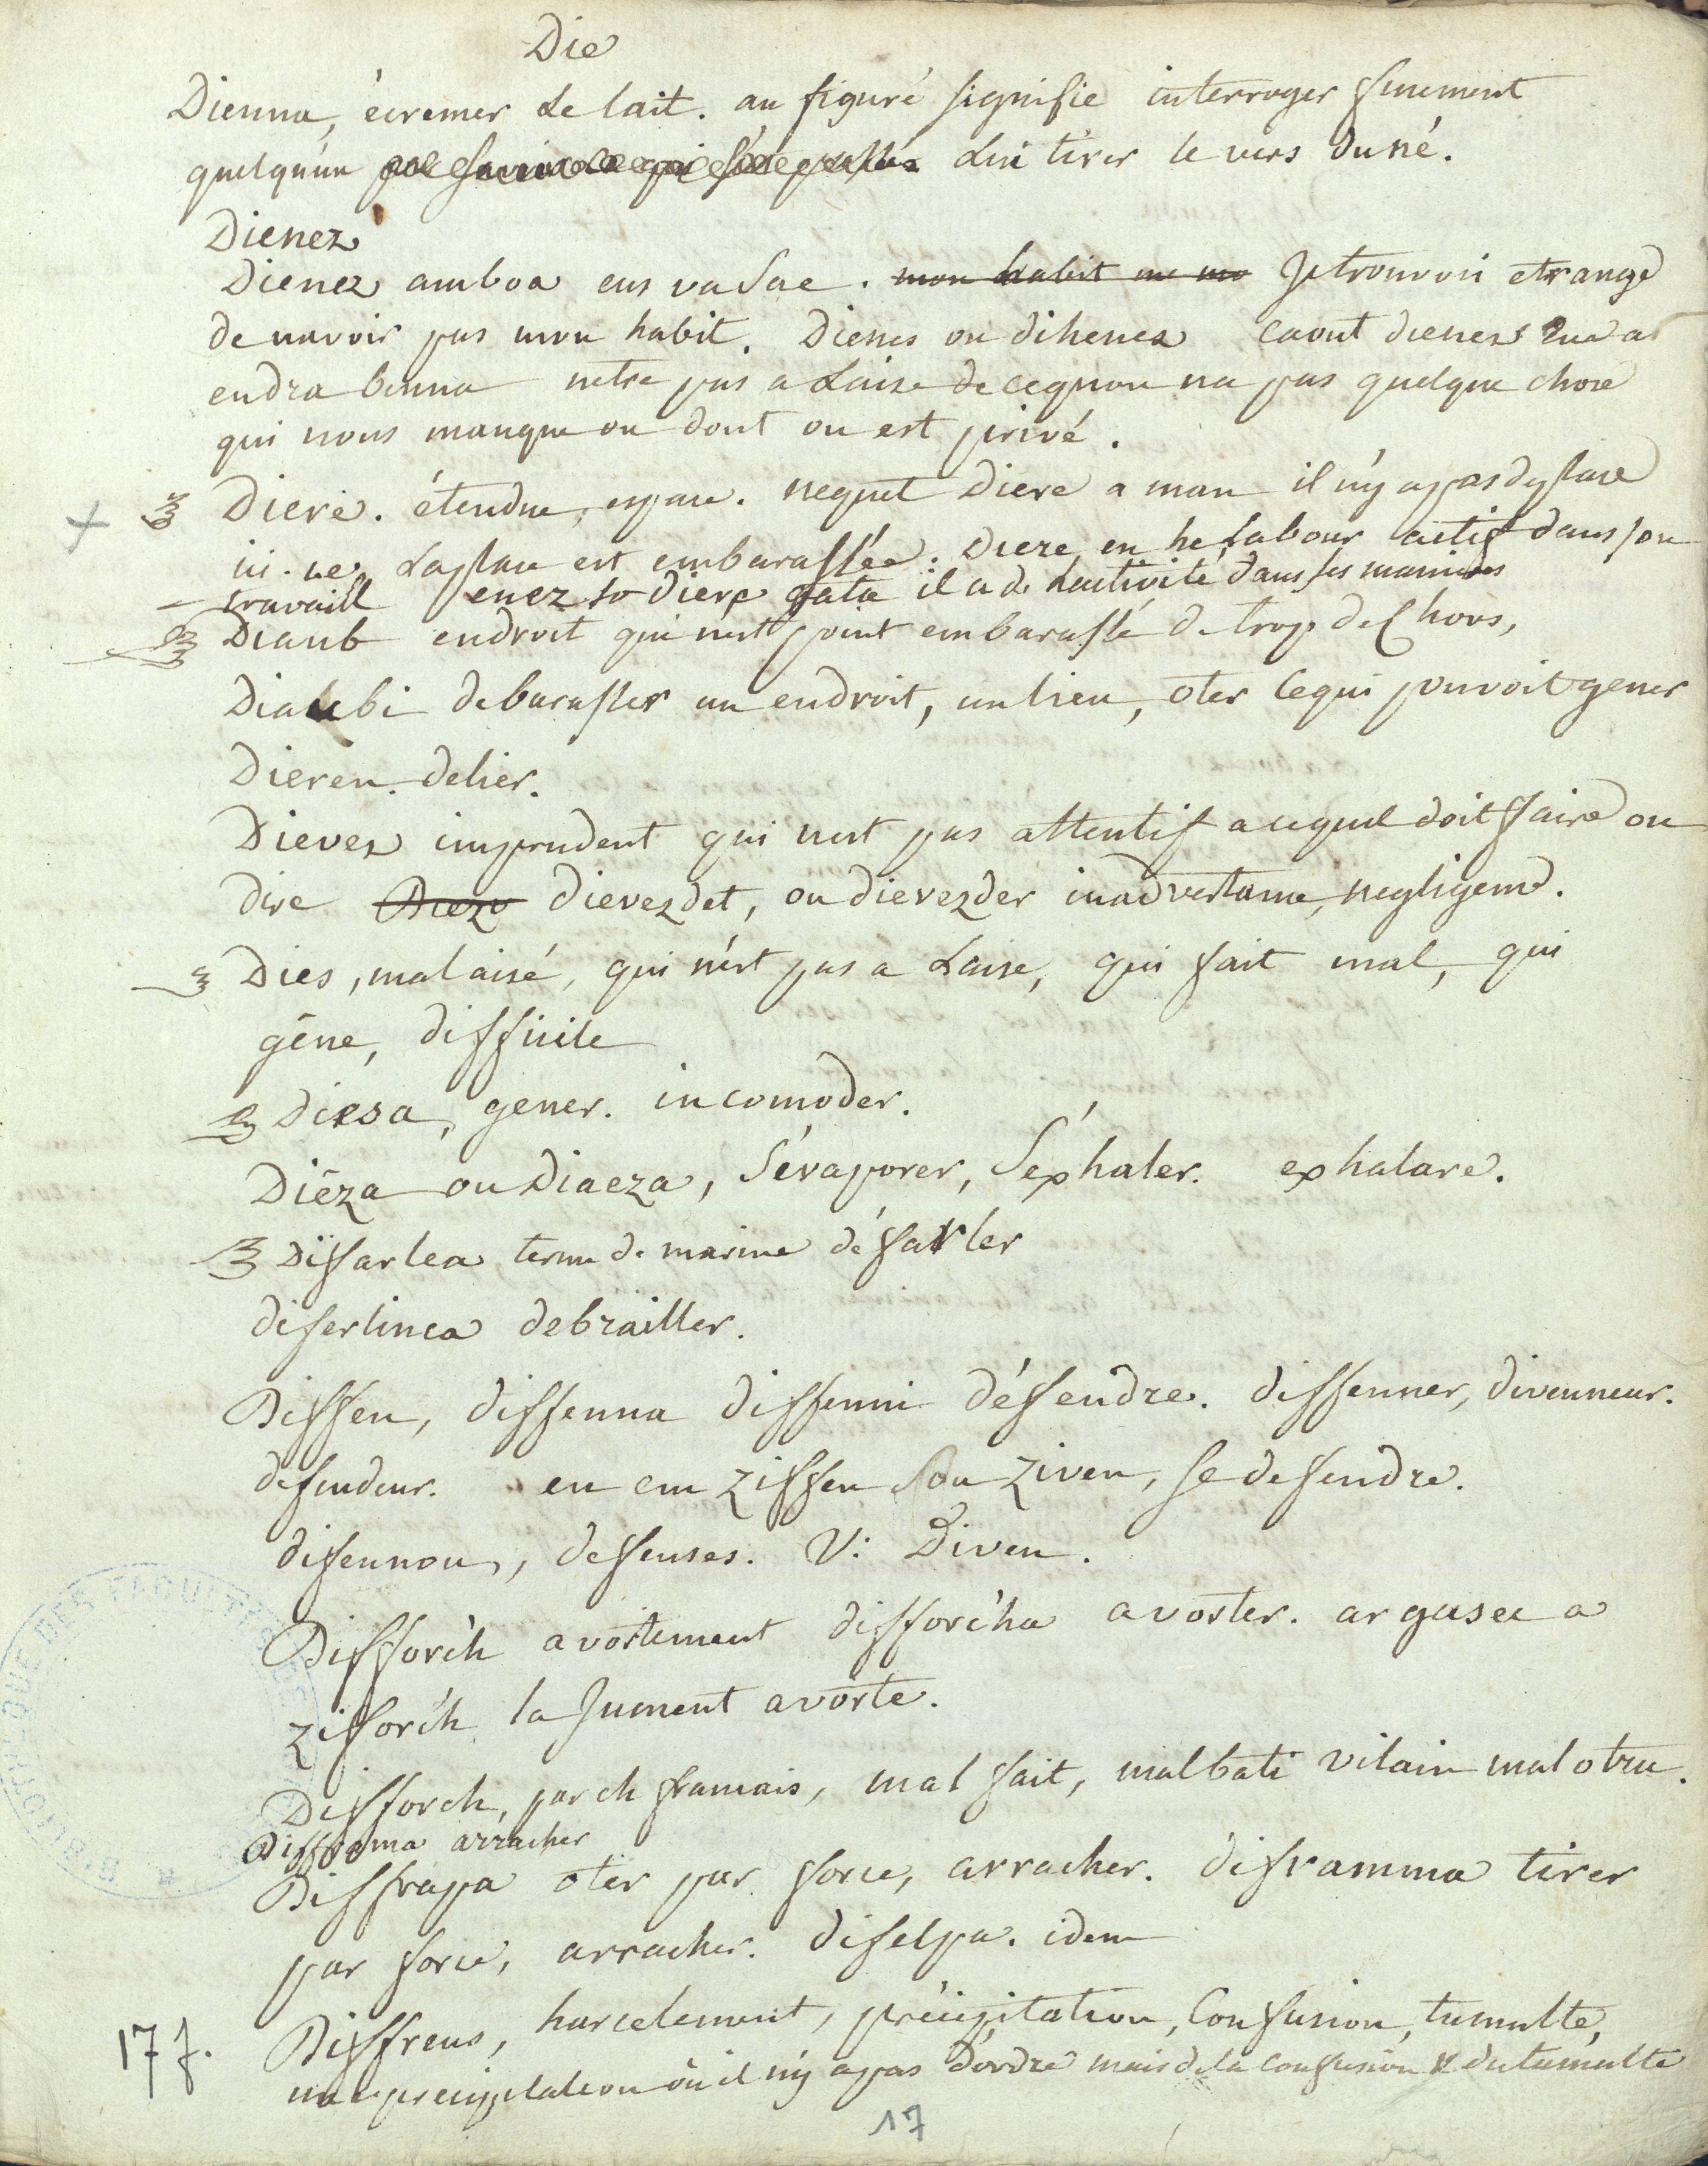 Die
Dienna, écremer Le lait. au figuré signifie interroger finement
quelqu'un Lui tirer le vers du né.
Dienez
Dienez amboa eus va sae. mon habit me Je trouvoi etrange
de navoir pas mon habit. Dienes ou dihenez caout dienez eus a
endra benna netre pas a Laise de cequon na pas quelque chose
qui nous manque ou dont on est privé.
Dieré. étendue, espace. nequet Diere a man il n'y a pas desplace
ici. Laplace est embarassée. Diere en he labour actif dans son
travaill enez so diere gata il a de Lactivité dans ses manieres
Diaub endroit qui n'est point embarassé de trop de Choses,
Diaubi debarasser un endroit, un lieu, oter Cequi pouvoit gener
Dieren. delier.
Dievez imprudent qui nest pas attentif a cequil doit faire ou
dire Diezv dievezdet, ou dievezder inadvertance, negligence.
Dies, mal aisé, qui n'est pas a Laise, qui fait mal, qui
gêne, difficile
Diesa, gener. incomoder.
Diëza ou Diaeza, S'évaporer, S'exhaler. exhalare.
Difarlea terme de marine défarler
diferlinca debrailler.
Diffen, diffenna diffenni défendre. diffenner, divenneur.
defendeur. en em Ziffen ou Ziven, se defendre.
difennou, defenses. V: Diven.
Difforc'h avortement difforc'ha avorter. ar gasec a
Zifforc'h la Jument avorte.
Difforch, par ch francais, mal fait, mal bati vilain mal otru.
Difframa arracher
Diffrapa oter par force, arracher. diframma tirer
par force, arracher. difelpa. idem
Diffreus, harcelement, précipitation, Confusion, tumulte,
une precipitation où il n'y a pas d'ordre mais de la confusion & du tumulte
177.
17